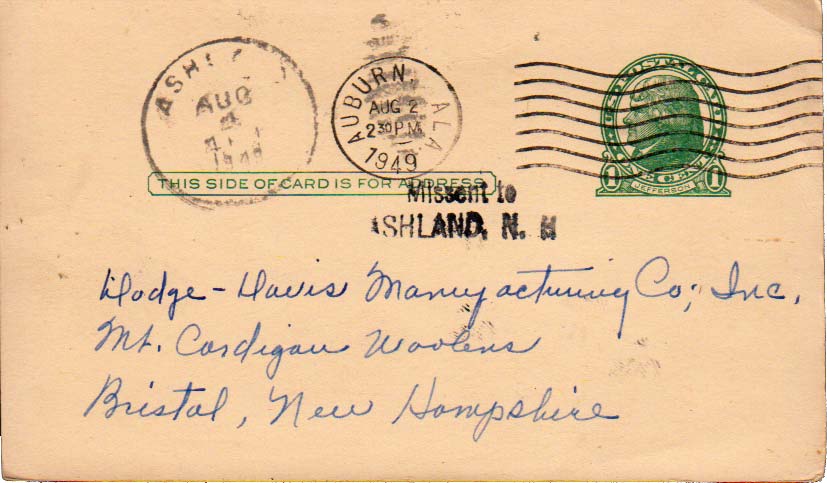 AUG
4
1949
AUBURN, ALA
AUG 2
2 30 P.M.
1949
U.S. POSTAL CARD
1 CENT 1
JEFFERSON
THIS SIDE OF CARD IS FOR ADDRESS
Missent to
ASHLAND, N. H
Dodge-Davis Manufacturing Co; Inc.
Mt. Cardigan Woolens
Bristol, New Hampshire